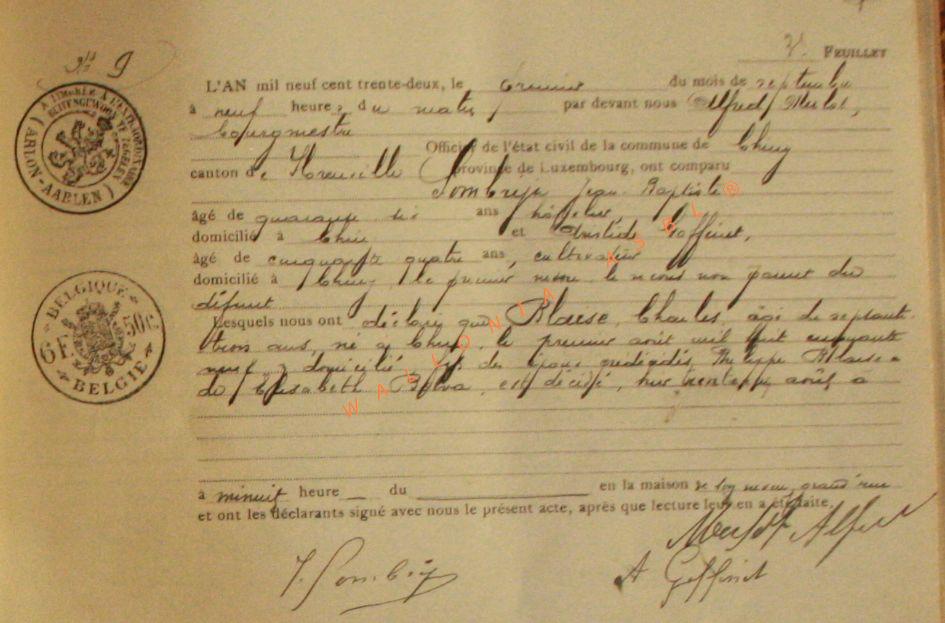 N° 9
2. FEUILLET
L'AN mil neuf cent trente-deux, le premier du mois de septembre
à neuf heures du matin, par devant nous Alfred
bourgmestre
Officier de l'état civil de la commune de Chiny
canton de province de Luxembourg, ont comparu
Jean-Baptiste
âgé de quarante six ans, hôtelier,
domicilié à Chiny et Aristide Goffinet,
âgé de cinquante quatre ans, cultivateur
domicilié à Chiny, le premier neveu, le second non parent du
défunt
Lesquels nous ont déclaré que Blaise, Charles, âgé de septante
trois ans, né à Chiny, le premier août mil huit cinquante
neuf, y domicilié, fils des époux Philippe Blaise
de Elisabeth est décédé, hier trente et un août, à
à minuit heure du en la maison de son neveu, grand'rue
et ont les déclarants signé avec nous le présent acte, après que lecture leur en a été faite.
Alfred
A Goffinet
A TIMBRER A L'EXTRAORDINAIRE
(ARLON-AARLEN)
BELGIQUE
6F. 50C
BELGIE
WALLONIA ASBL®